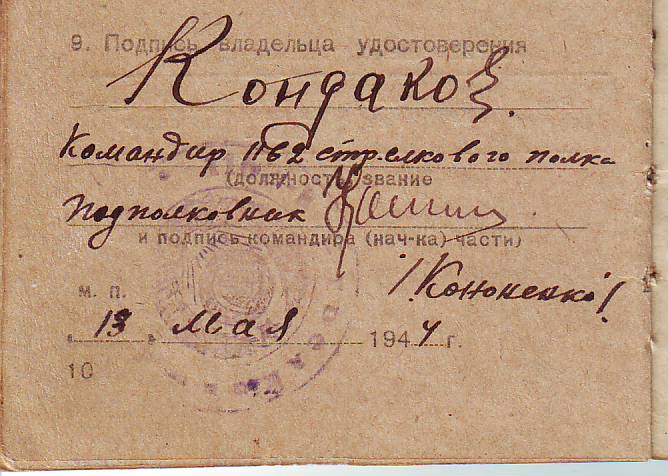 9. Подпись владельца удостоверения
Кондаков.
Командир 1162 стрелкового полка
(должность, звание
подполковник
и подпись командира (нач-ка) части)
/Кононенко/
м. п.
13 мая 1944 г.
10